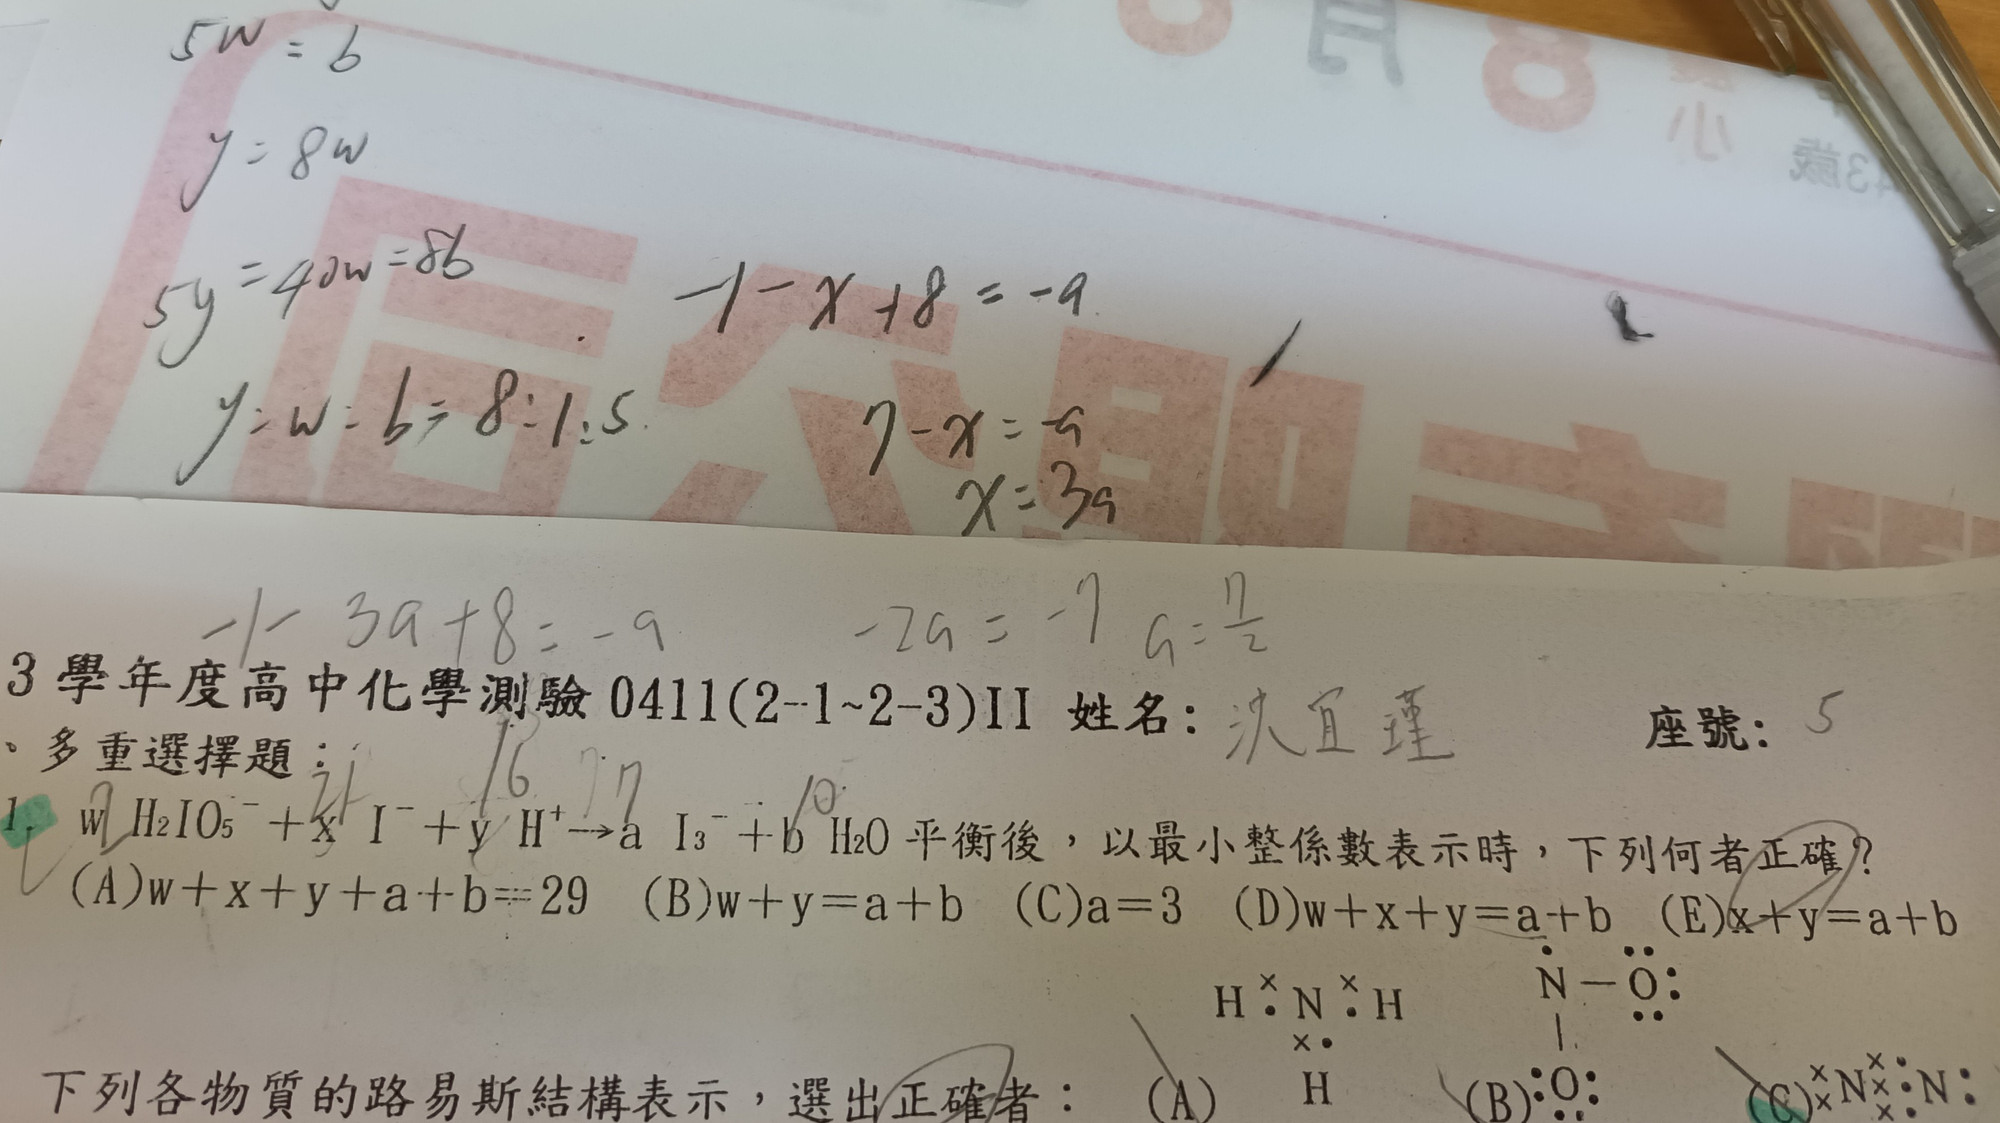 5w = b
y = 8w
5y = 40w = 8b
y : w : b = 8 : 1 : 5
-1 - x + 8 = -a
7 - x = -a
x = 3a
-1 - 3a + 8 = -a
-2a = -7 a = 7/2
3 學年度高中化學測驗 0411(2-1~2-3)II 姓名: 洪宜瑾 座號: 5
、多重選擇題:
2 21 16 7 10
1. w H₂IO₅⁻ + x I⁻ + y H⁺ → a I₃⁻ + b H₂O 平衡後,以最小整係數表示時,下列何者正確?
(A)w+x+y+a+b=29 (B)w+y=a+b (C)a=3 (D)w+x+y=a+b (E)x+y=a+b
下列各物質的路易斯結構表示,選出正確者: (A) H N H H (B) N O O (C) N N
8月
小
43歲